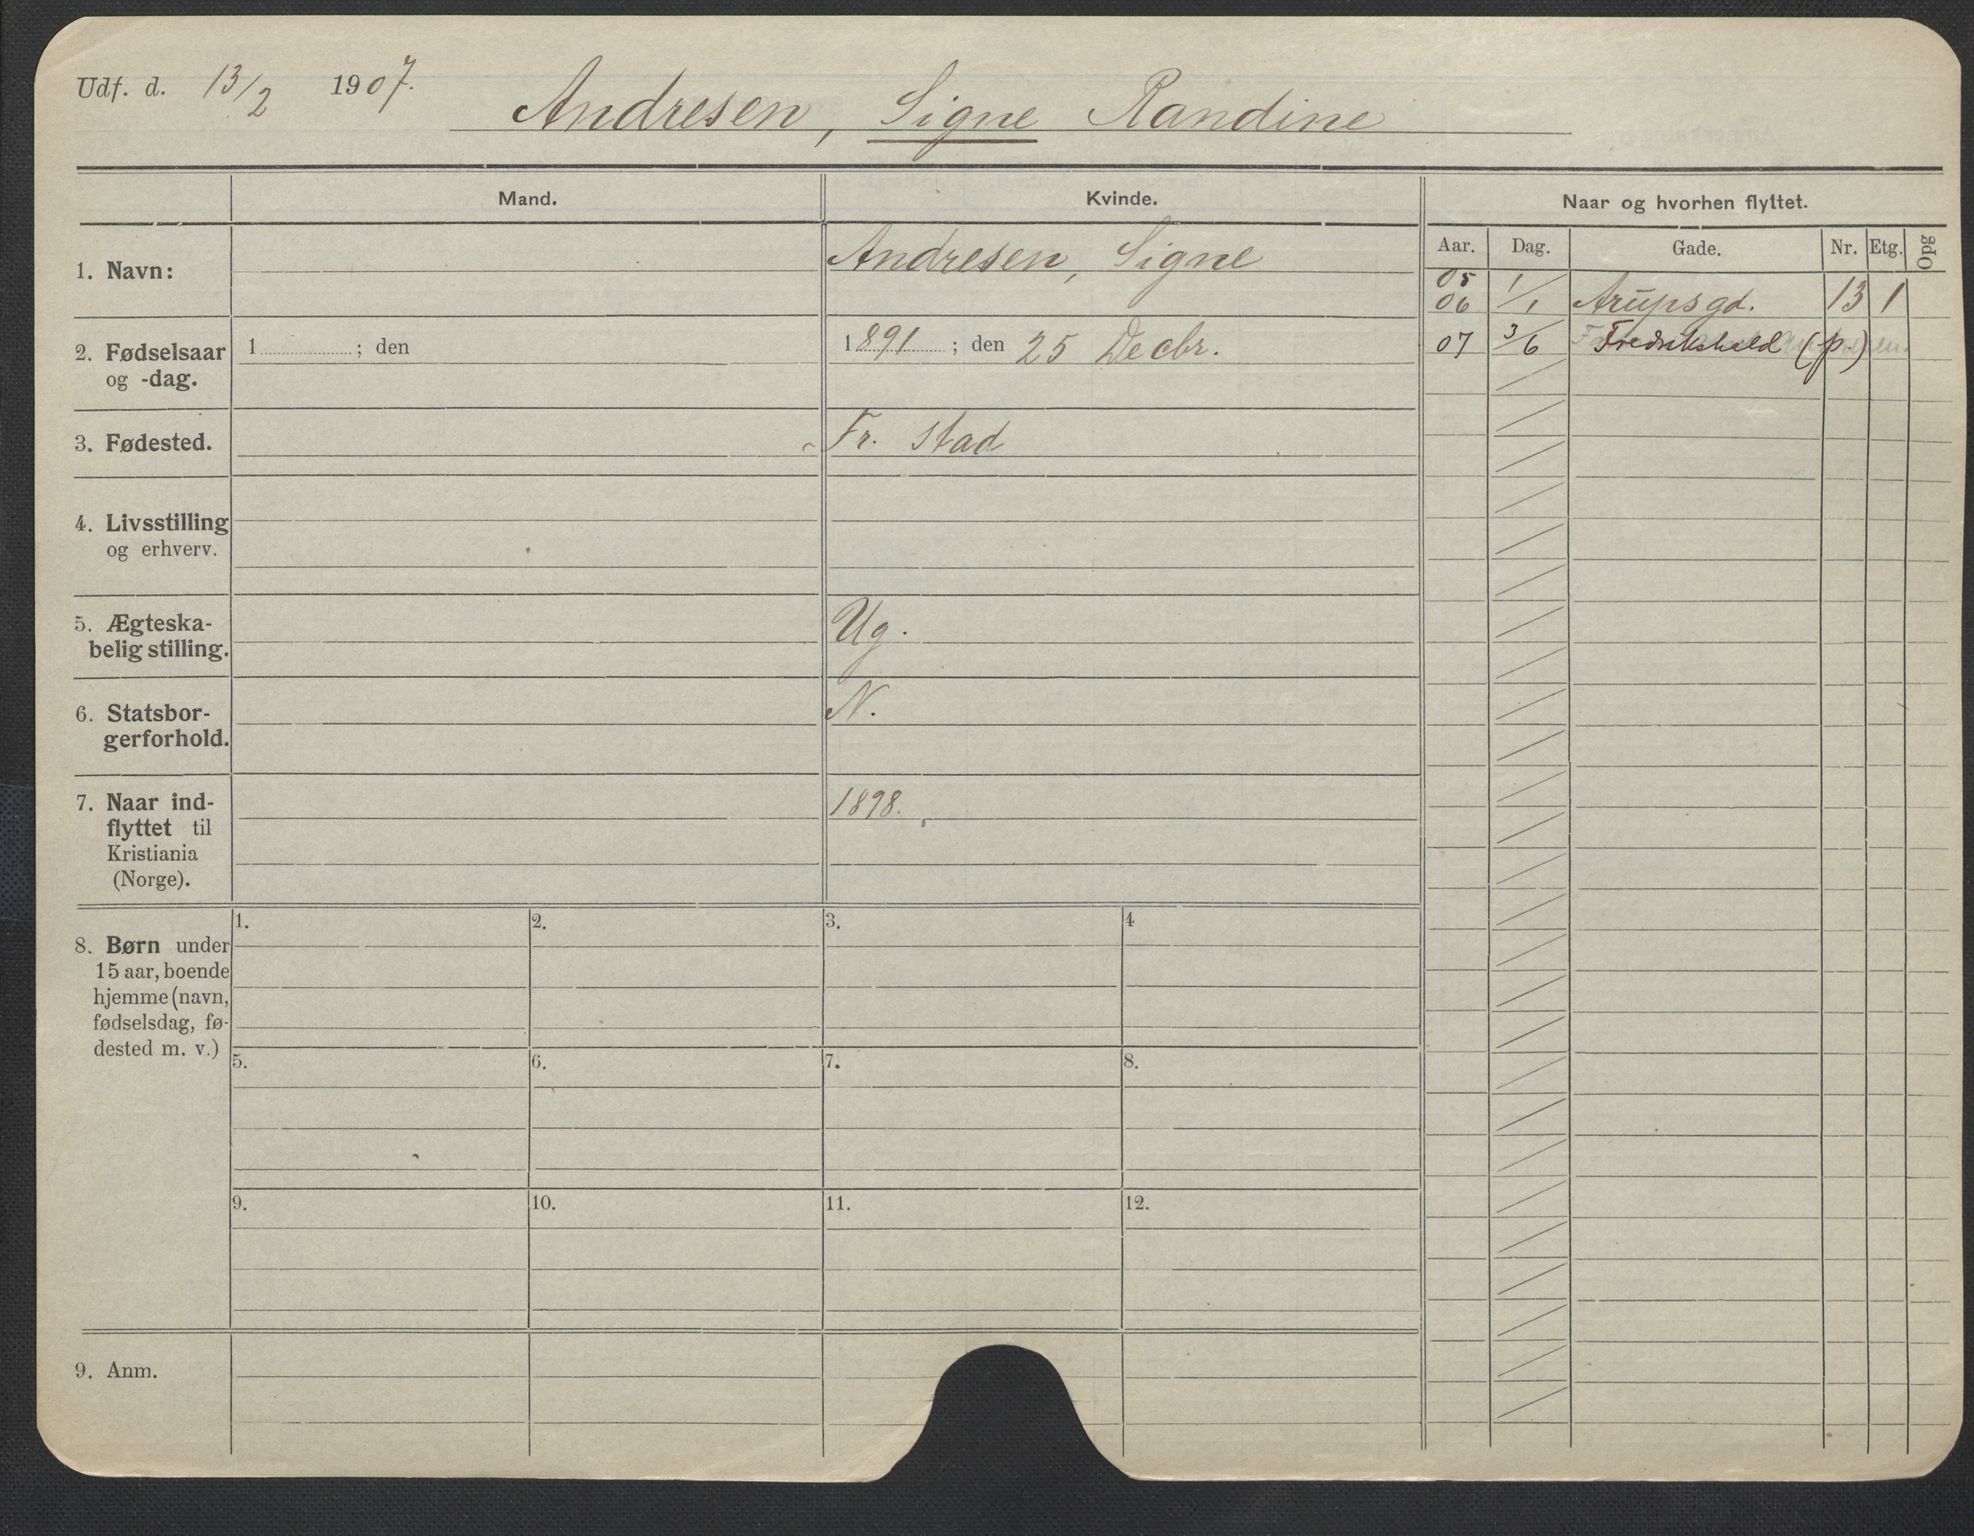 Udf. d. 13/2 1907.
Andresen, Signe Randine
Mand.
Kvinde.
Naar og hvorhen flyttet.
Aar. Dag. Gade. Nr. Etg. Opg
1. Navn:
Andresen, Signe
05 1/1
06 Arupsgd. 13 1
2. Fødselsaar
og -dag.
1 ; den
1891 ; den 25 Decbr.
07 3/6 Fredrikshald (p.)
3. Fødested.
Fr. stad
4. Livsstilling
og erhverv.
5. Ægteska-
belig stilling.
Ug.
6. Statsbor-
gerforhold.
N.
7. Naar ind-
flyttet til
Kristiania
(Norge).
1898.
8. Børn under
15 aar, boende
hjemme (navn,
fødselsdag, fø-
dested m. v.)
1. 2. 3. 4
5. 6. 7. 8.
9. 10. 11. 12.
9. Anm.